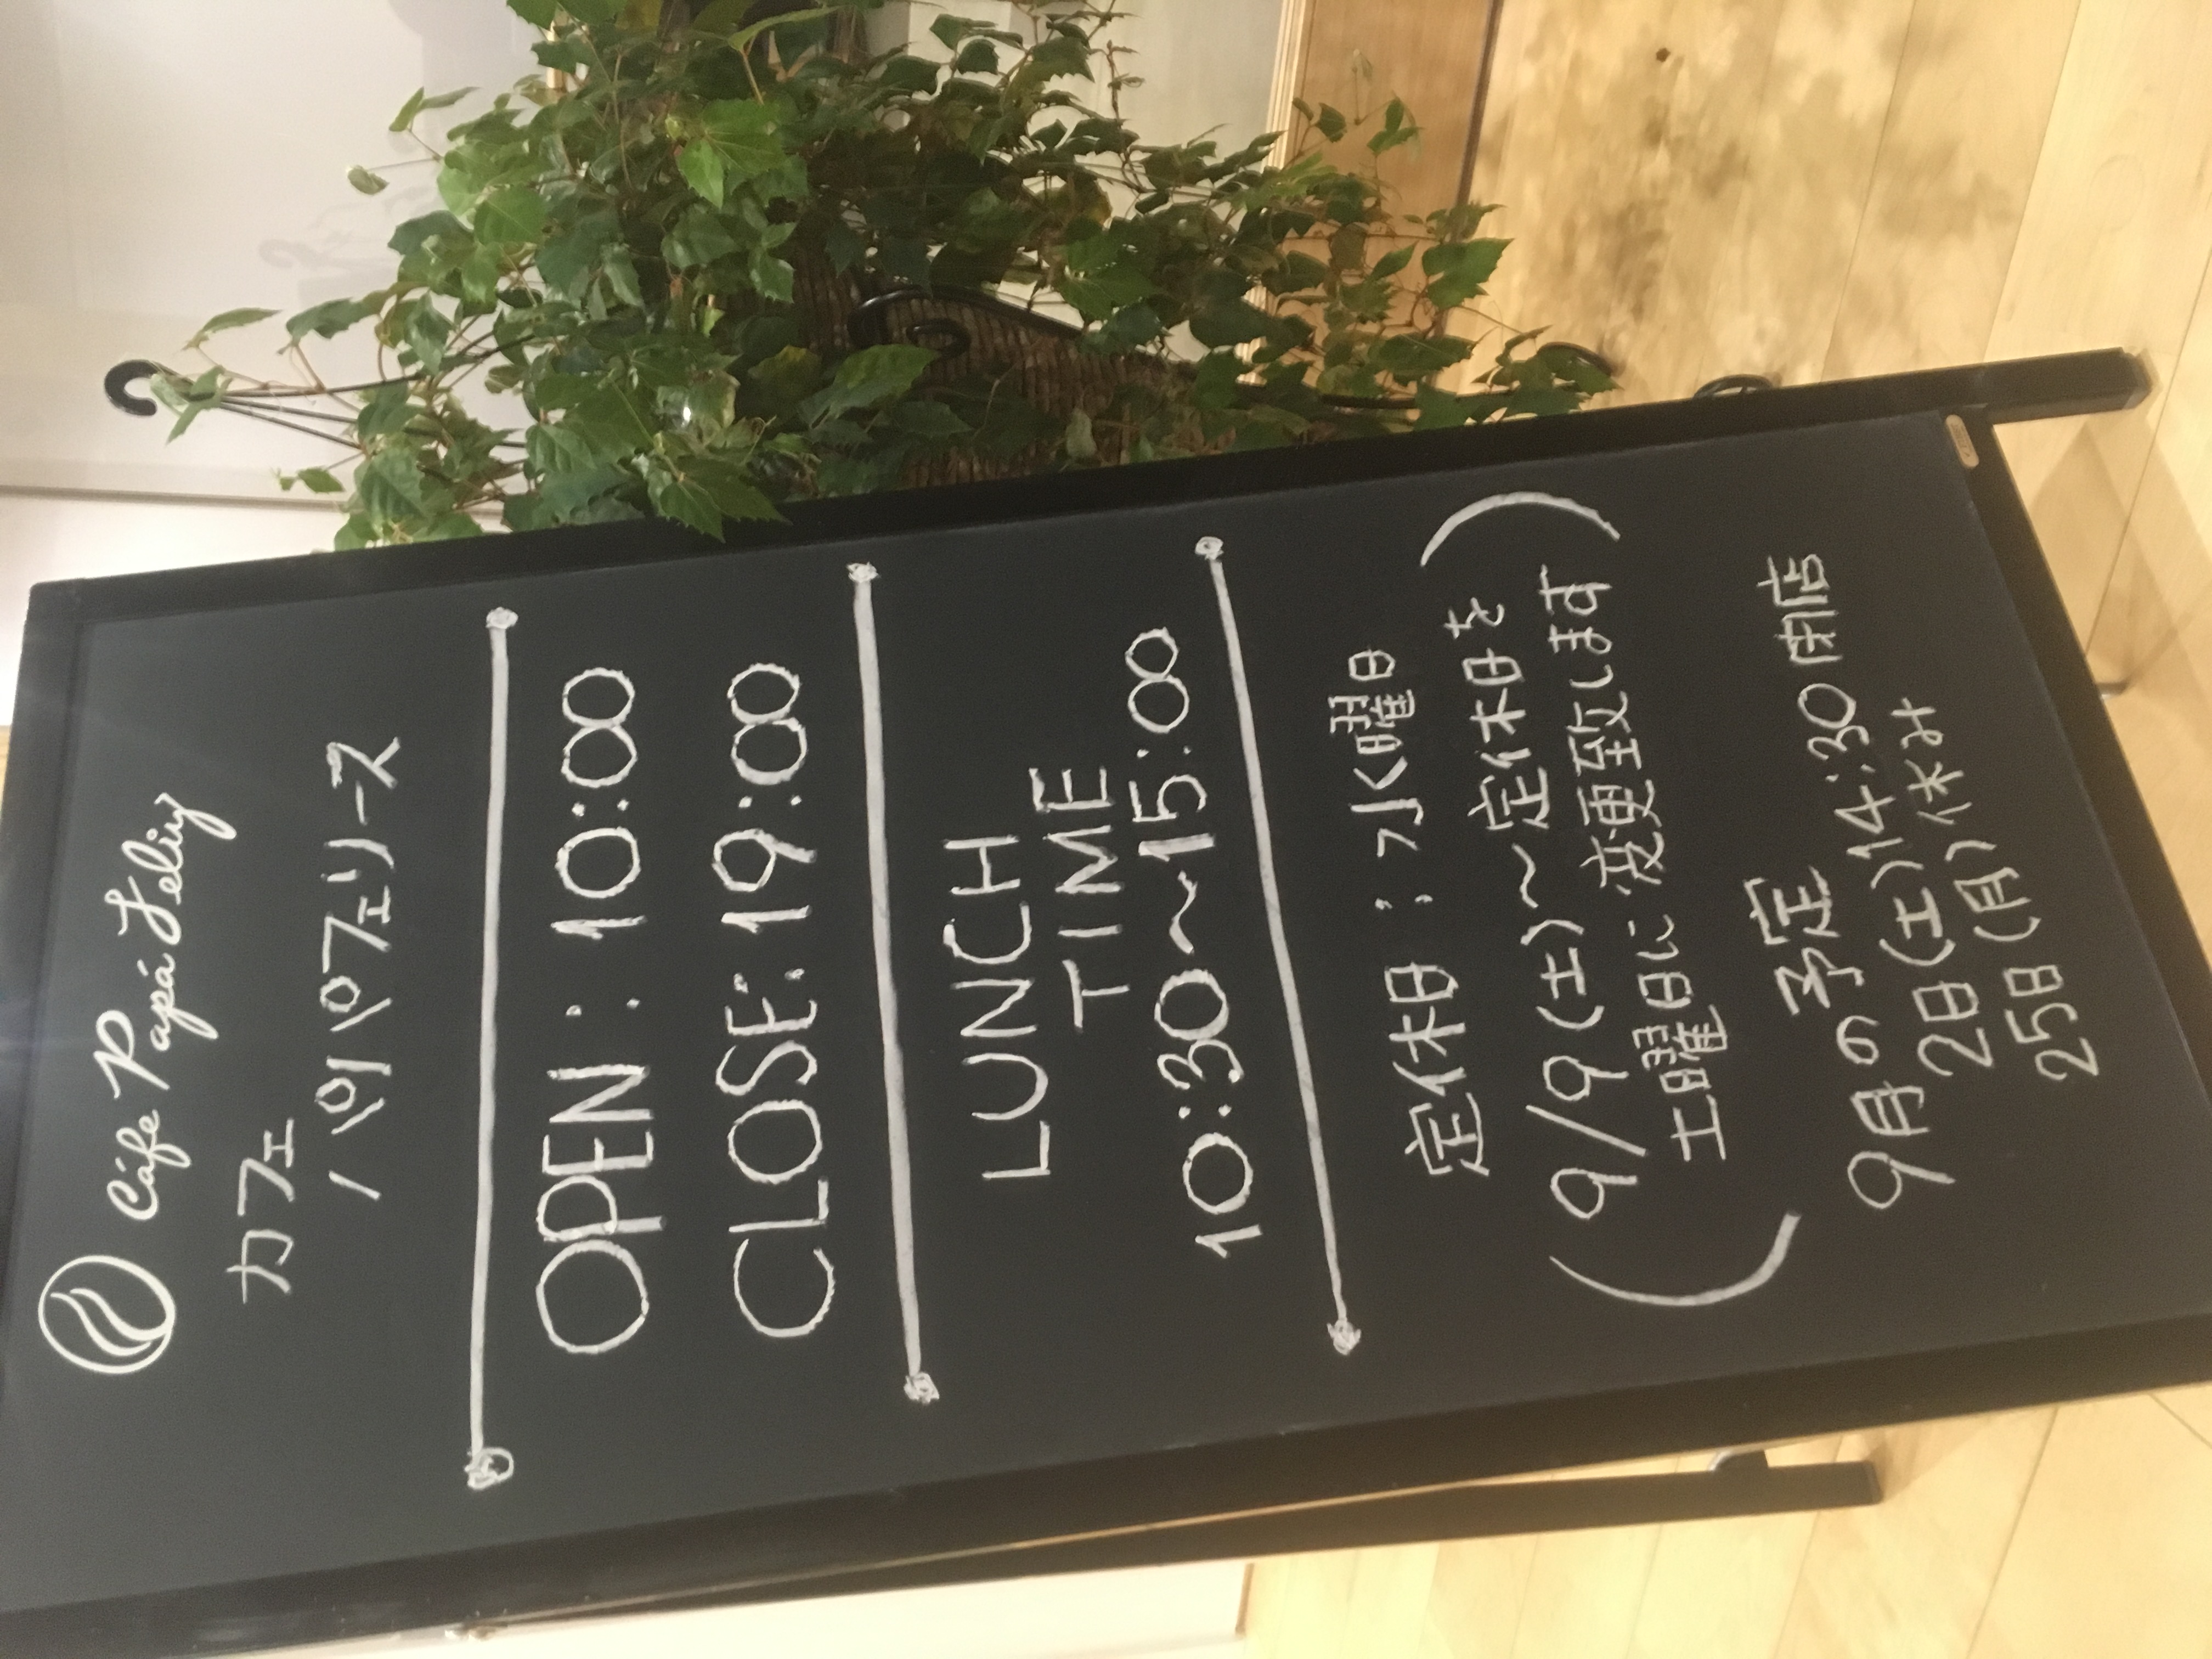 Cáfe Papá Feliz
カフェ
パパフェリース
OPEN : 10:00
CLOSE: 19:00
LUNCH
TIME
10:30〜15:00
定休日 : 水曜日
(9/9(土)〜定休日を
土曜日に変更致します)
9月の予定
2日(土)14:30閉店
25日(月)休み